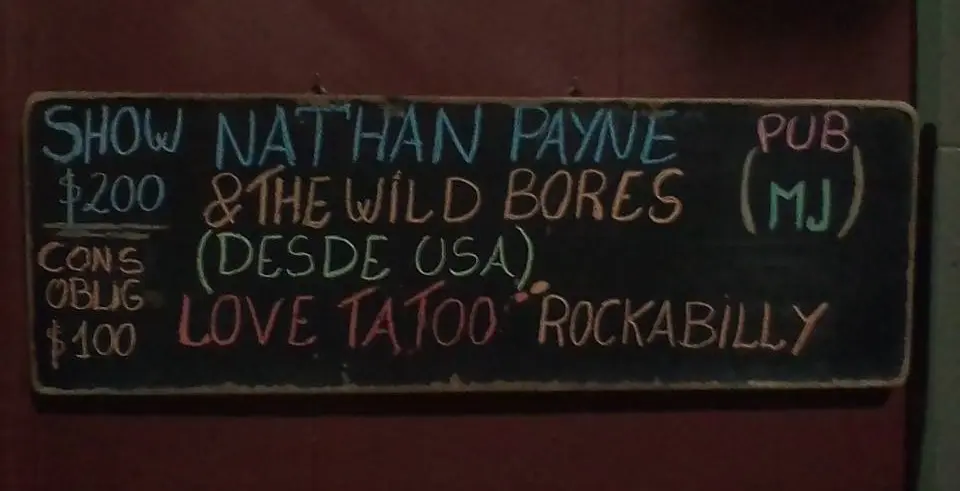 SHOW NATHAN PAYNE PUB
$200 & THE WILD BORES (MJ)
CONS (DESDE USA)
OBLIG
$100 LOVE TATOO ROCKABiLLY